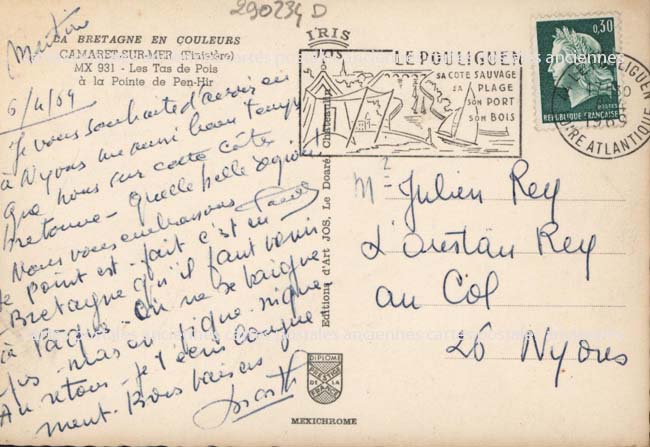 290234 D
LA BRETAGNE EN COULEURS
CAMARET-SUR-MER (Finistère)
MX 931 - Les Tas de Pois
à la Pointe de Pen-Hir
6/4/69
Je vous souhaite d'avoir eu
à Nyons un aussi beau temps
que nous sur cette côte
bretonne - quelle belle région!
Nous vous embrassons
Le point est fait c'est en
Bretagne qu'il faut venir
à Pâques - On ne se baigne
pas - mais on pique-nique
Au retour - je t'écris longue
ment - Bons baisers
IRIS
JOS
Editions d'Art JOS, Le Doaré, Châteaulin
DIPLOME
PRESTIGE
DE LA
FRANCE
MEXICHROME
LE POULIGUEN
SA COTE SAUVAGE
SA PLAGE
SON PORT
SON BOIS
0,30
POSTES
REPUBLIQUE FRANÇAISE
LE POULIGUEN
LOIRE ATLANTIQUE
Mr Julien Rey
L'Oustau Rey
au Col
26 Nyons